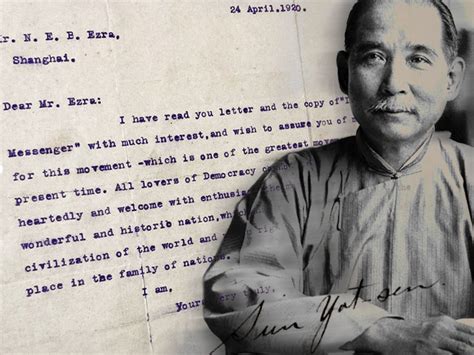 24 April.1920.
r. N. E. B. Ezra,
Shanghai.
Dear Mr. Ezra:
I have read you letter and the copy of "I
Messenger" with much interest,and wish to assure you of
for this movement -which is one of the greatest
present time. All lovers of Democracy
heartedly and welcome with
wonderful and historic nation,
civilization of the world and
place in the family of nations.
I am,
Yours very truly,
Sun Yat sen.